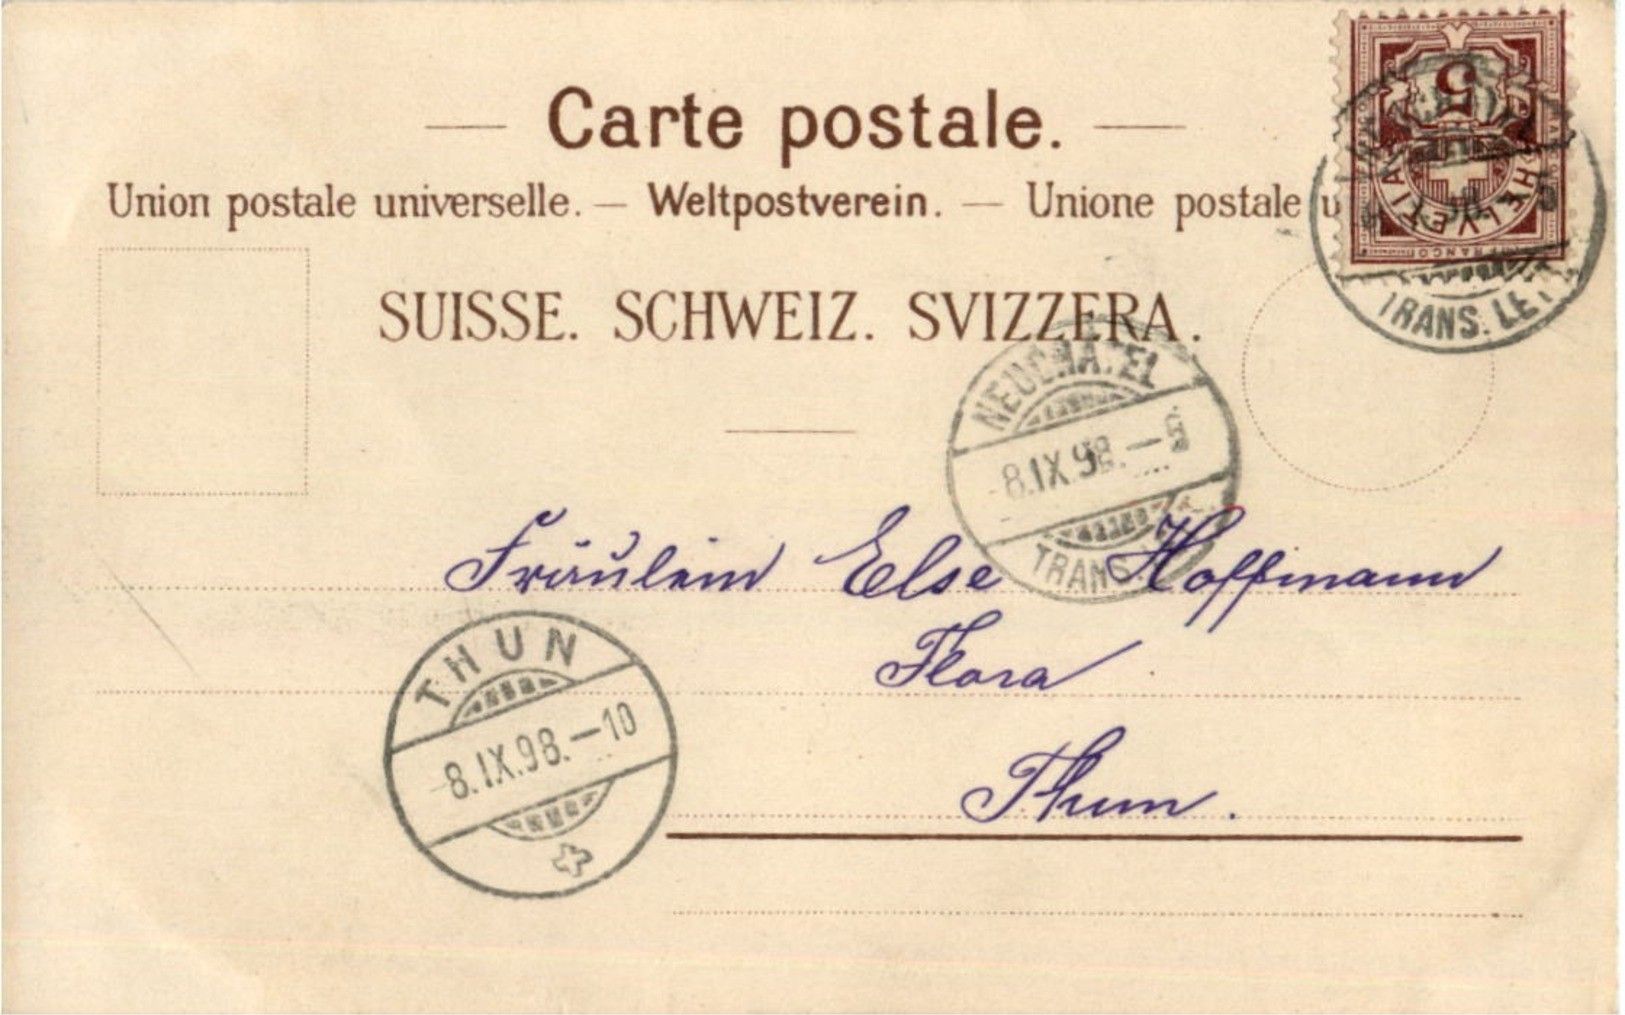 Carte postale.
Union postale universelle. — Weltpostverein. — Unione postale u
SUISSE. SCHWEIZ. SVIZZERA.
5
HELVETIA
FRANCO
TRANS. LET
NEUCHATEL
8.IX.98.—
TRANS.
Fräulein Else Hoffmann
Flora
Thun.
THUN
8.IX.98.—10